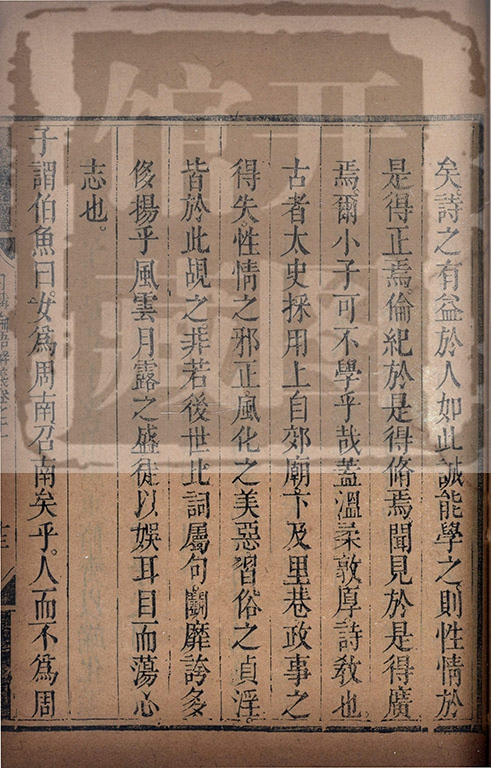 矣詩之有益於人如此誠能學之則性情於
是得正焉倫紀於是得脩焉聞見於是得廣
焉爾小子可不學乎哉蓋溫柔敦厚詩教也
古者太史採用上自郊廟下及里巷政事之
得失性情之邪正風化之美惡習俗之貞淫
皆於此覘之非若後世比詞屬句鬭靡誇多
侈揚乎風雲月露之盛徒以娛耳目而蕩心
志也。
子謂伯魚曰女爲周南召南矣乎。人而不爲周